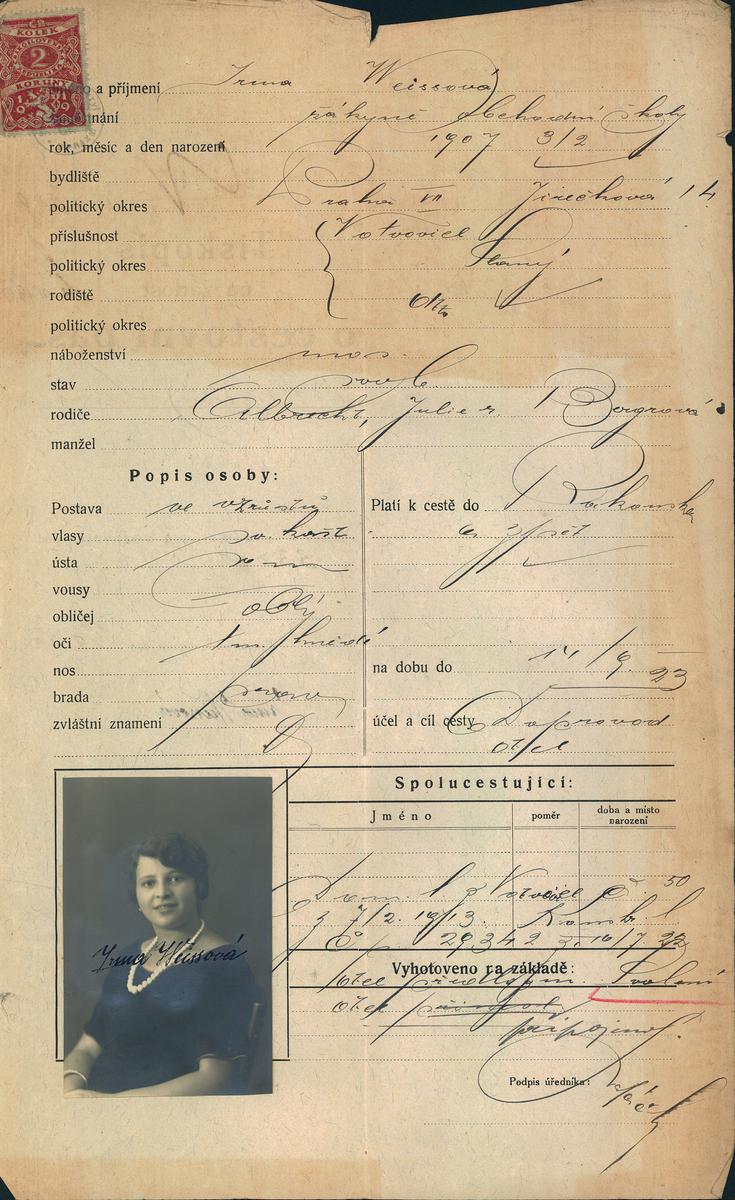 KOLEK
2
KORUNY
Jméno a příjmení Irma Weissová
zaměstnání žákyně obchodní školy
rok, měsíc a den narození 1907 3/2
bydliště
politický okres Praha VII Jirečkova 14
příslušnost Votvovice
politický okres Slaný
rodiště
politický okres
náboženství mos.
stav svob.
rodiče Albrecht, Julie r. Bergrová
manžel
Popis osoby:
Postava ve vzrůstu
vlasy
ústa
vousy
obličej oblý
oči tm. hnědé
nos
brada
zvláštní znamení
Platí k cestě do Rakouska
a zpět
na dobu do 14/9 23
účel a cíl cesty Doprovod
otce
Spolucestující:
Jméno poměr doba a místo narození
Dom. l. z Votvovic č. 50
z 7/2. 1913.
č. 29342 z. 16/7 22
Vyhotoveno na základě:
otec Svolení
otce
připojeno.
Podpis úředníka:
Irma Weissová